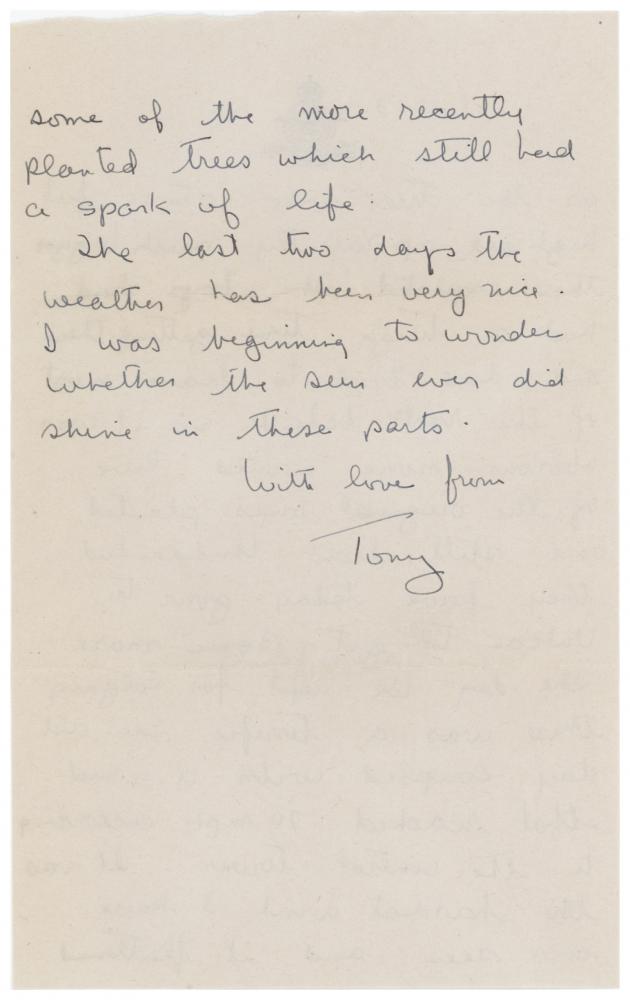 some of the more recently
planted trees which still had
a spark of life.
The last two days the
weather has been very nice.
I was beginning to wonder
whether the sun ever did
shine in these parts.
With love from
Tony